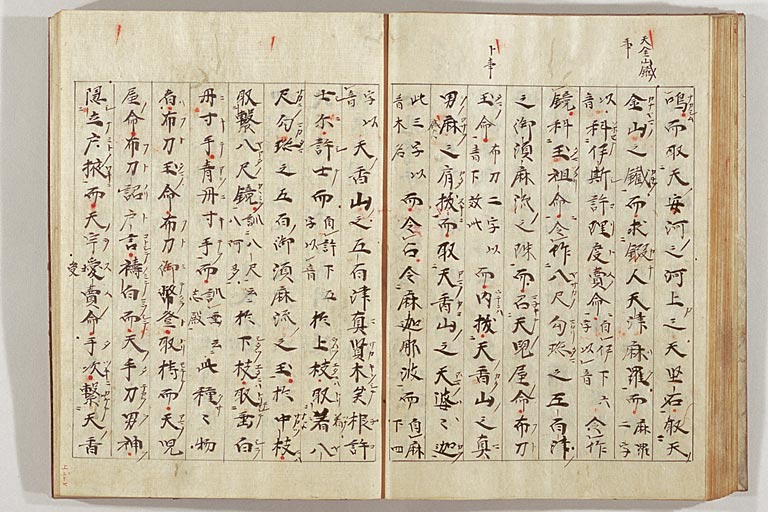 天金山鐵
事
卜事
鳴而取天安河之河上之天堅石取天
金山之鐵而求鍛人天津麻羅而麻羅二字
以音科伊斯許理度賣命自伊下六字以音令作
鏡科玉祖命令作八尺勾璁之五百津
之御須麻流之珠而召天兒屋命布刀
玉命布刀二字以音下效此而内拔天香山之真
男鹿之肩拔而取天香山之天婆々迦
此三字以音木名而令占令麻迦那波而自麻下四
字以音天香山之五百津真賢木矣根許
士尒許士而自許下五字以音於上枝取著八
尺勾璁之五百御須麻流之玉於中枝
取繋八尺鏡訓八尺云八阿多於下枝取垂白
丹寸手青丹寸手而訓垂云志殿此種々物
者布刀玉命布刀御幣登取持而天兒
屋命布刀詔戸言禱白而天手力男神
隱立戸掖而天宇受賣命手次繋天香